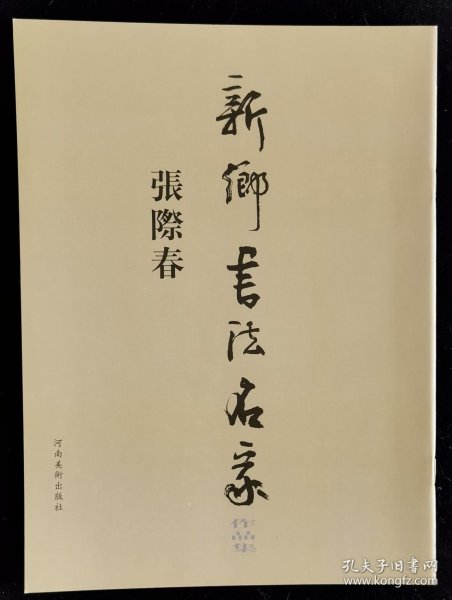 新鄉書法名家
作品集
張際春
河南美術出版社
孔夫子旧书网
www.kongfz.com